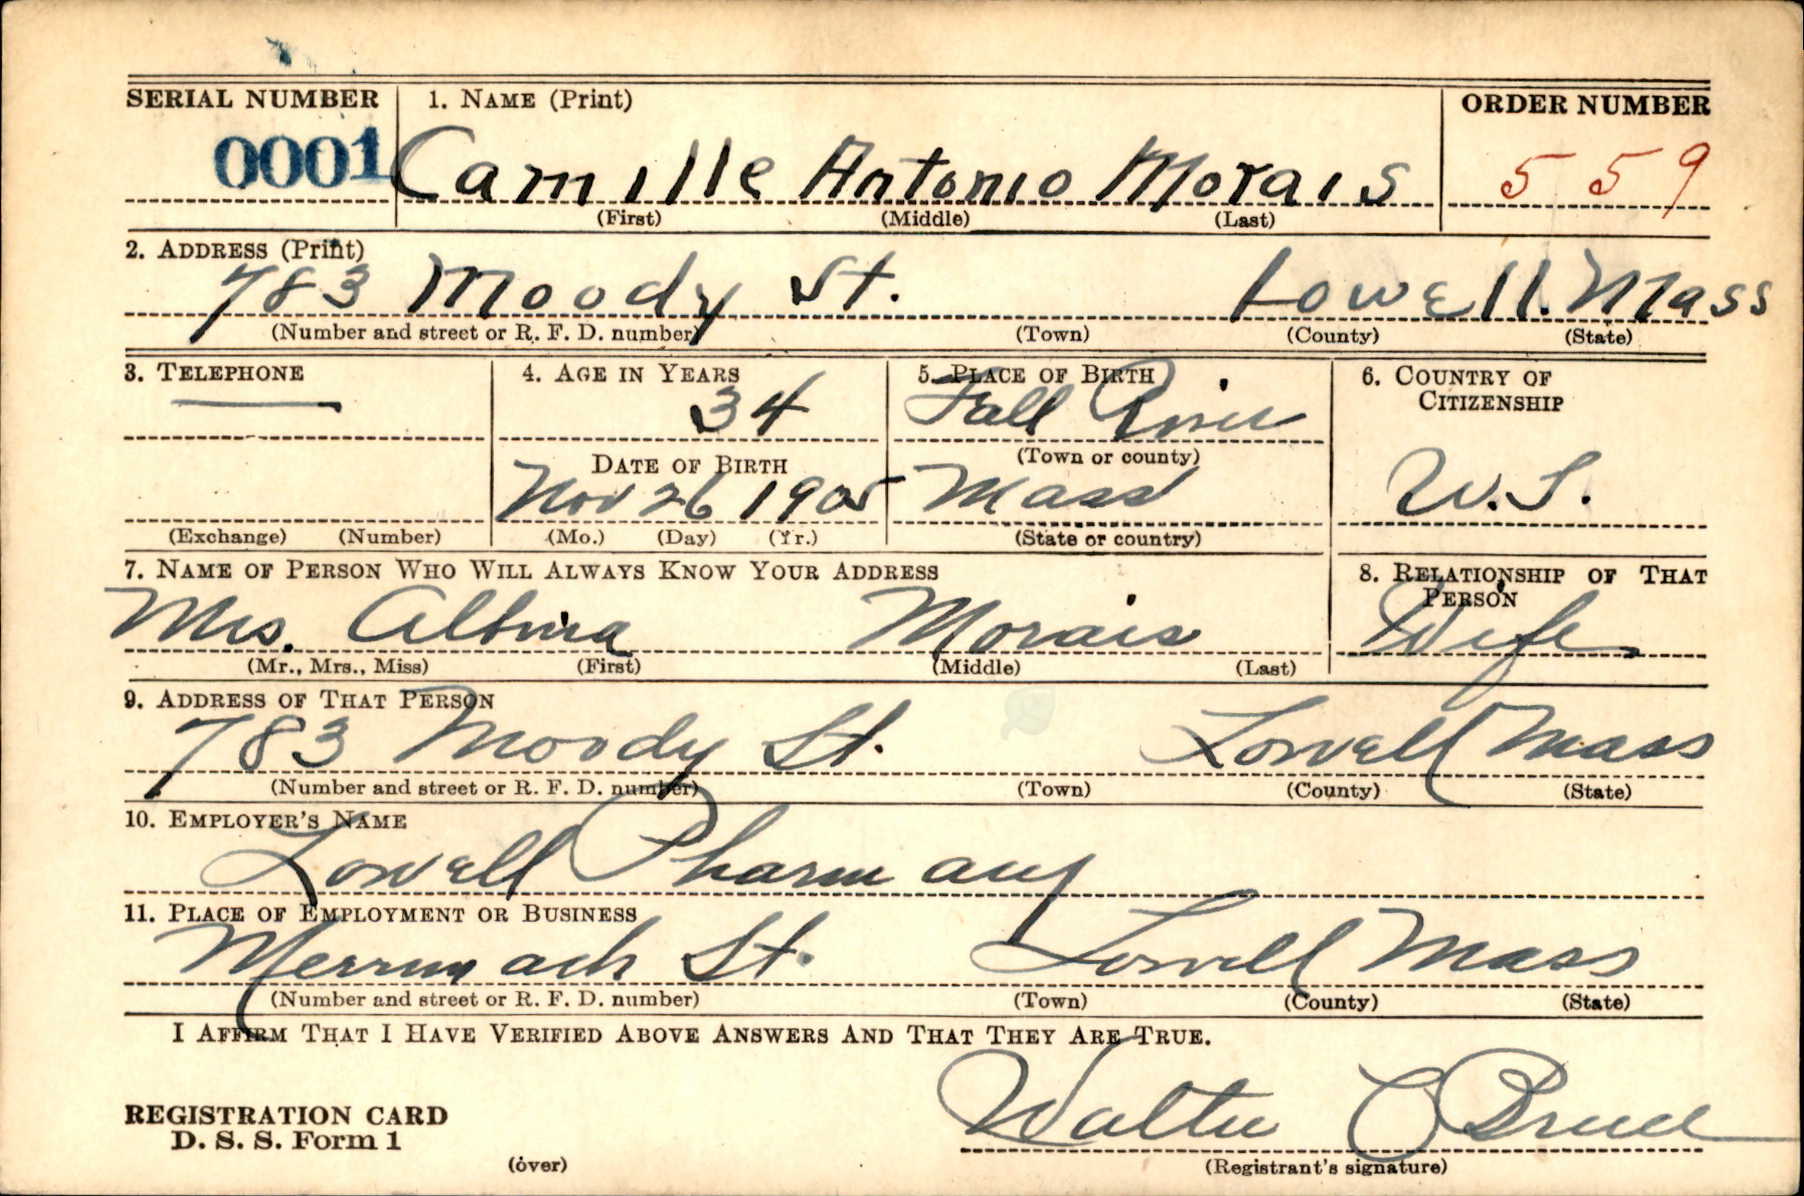 SERIAL NUMBER 1. NAME (Print) ORDER NUMBER
0001 Camille Antonio Morais 559
(First) (Middle) (Last)
2. ADDRESS (Print)
783 Moody St. Lowell. Mass
(Number and street or R. F. D. number) (Town) (County) (State)
3. TELEPHONE 4. AGE IN YEARS 5. PLACE OF BIRTH 6. COUNTRY OF
CITIZENSHIP
34 Fall River
DATE OF BIRTH (Town or county)
Nov 26 1905 Mass U.S.
(Exchange) (Number) (Mo.) (Day) (Yr.) (State or country)
7. NAME OF PERSON WHO WILL ALWAYS KNOW YOUR ADDRESS 8. RELATIONSHIP OF THAT
PERSON
Mrs. Albina Morais Wife
(Mr., Mrs., Miss) (First) (Middle) (Last)
9. ADDRESS OF THAT PERSON
783 Moody St. Lowell Mass
(Number and street or R. F. D. number) (Town) (County) (State)
10. EMPLOYER'S NAME
Lowell Pharmacy
11. PLACE OF EMPLOYMENT OR BUSINESS
Merrimack St. Lowell Mass
(Number and street or R. F. D. number) (Town) (County) (State)
I AFFIRM THAT I HAVE VERIFIED ABOVE ANSWERS AND THAT THEY ARE TRUE.
Walter C Bruce
REGISTRATION CARD
D. S. S. Form 1
(over) (Registrant's signature)